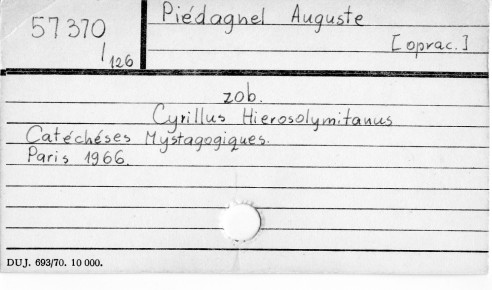 57370
/126
Piédagnel Auguste
[oprac.]
zob.
Cyrillus Hierosolymitanus
Catéchéses Mystagogiques.
Paris 1966.
DUJ. 693/70. 10 000.